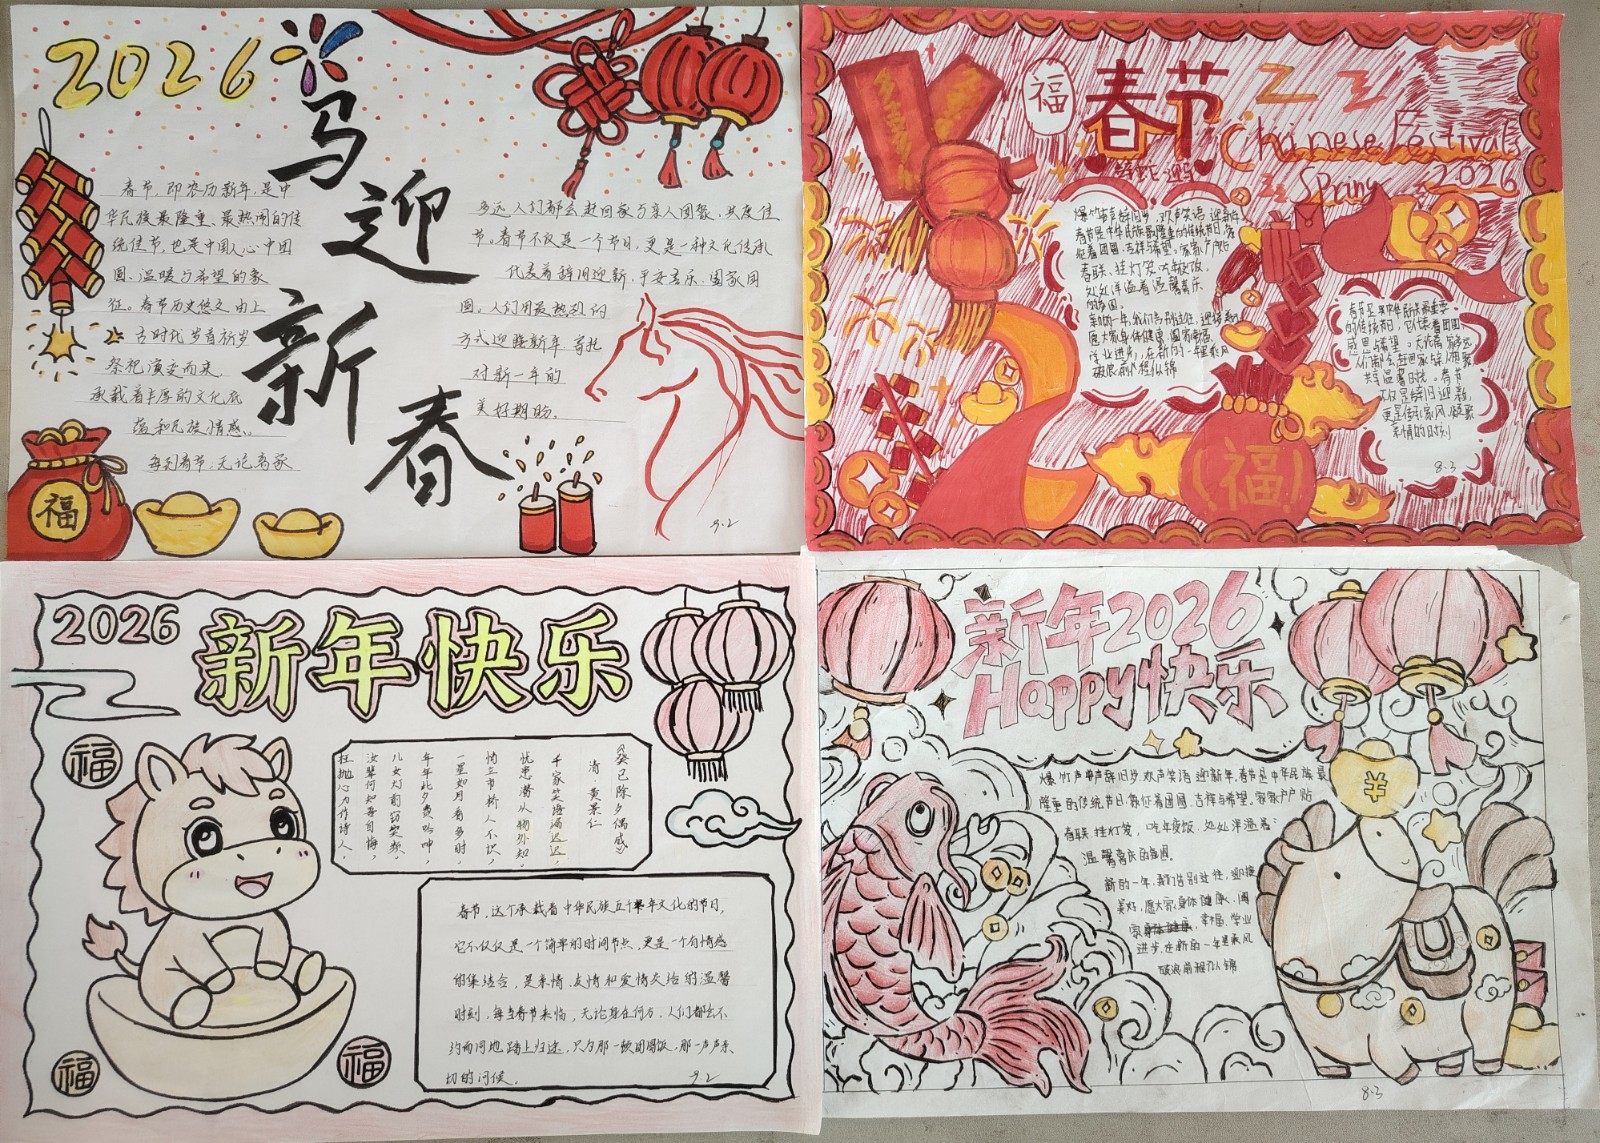 2026
马
迎
新
春
春节，即农历新年，是中
华民族最隆重、最热闹的传
统佳节，也是中国人心中团
圆、温暖与希望的象
征。春节历史悠久，由上
古时代岁首祈岁
祭祀演变而来
承载着丰厚的文化底
蕴和民族情感。
每到春节，无论离家
多远，人们都会赶回家与亲人团聚，共度佳
节。春节不仅是一个节日，更是一种文化传承
代表着辞旧迎新，平安喜乐，阖家团
圆。人们用最热烈的
方式迎接新年，寄托
对新一年的
美好期盼。
福
9.2
福
春节
Chinese Festival
Spring 2026
辞蛇迎马
爆竹声声辞旧岁，欢声笑语迎新年，
春联、挂灯笼、吃年夜饭，
处处洋溢着温馨喜庆
的氛围。
春节是中华民族最重要
的传统节日，它代表着团圆
感恩与希望。无论离家多远
人们都会赶回家与亲人相聚
共享温馨时光。春节
不仅是辞旧迎新，
更是传承家风，凝聚
亲情的时刻
8.3
福
2026
新年快乐
福
《癸巳除夕偶感》
清 黄景仁
千家笑语漏迟迟，
忧患潜从物外知，
悄立市桥人不识，
一星如月看多时，
年年此夕费吟呻，
儿女灯前窃笑频，
汝辈何知吾自悔，
枉抛心力作诗人，
春节，这个承载着中华民族五千年文化的节日，
它不仅仅是一个简单的时间节点，更是一个有情感
的集结令，是亲情、友情和爱情交洽的温馨
时刻，每当春节来临，无论身在何方，人们都会不
约而同地踏上归途，只为那一顿团圆饭，那一声声亲
切的问候。
9.2
福
福
新年2026
Happy快乐
爆竹声声辞旧岁，欢声笑语迎新年，春节是中华民族最
隆重的传统节日，象征着团圆、吉祥与希望，家家户户贴
春联、挂灯笼，吃年夜饭，处处洋溢着
温馨喜庆的氛围。
新的一年，我们告别过往，迎接
美好，愿大家身体健康，阖
家幸福，学业
进步，在新的一年里乘风
破浪前程似锦
¥
8.3